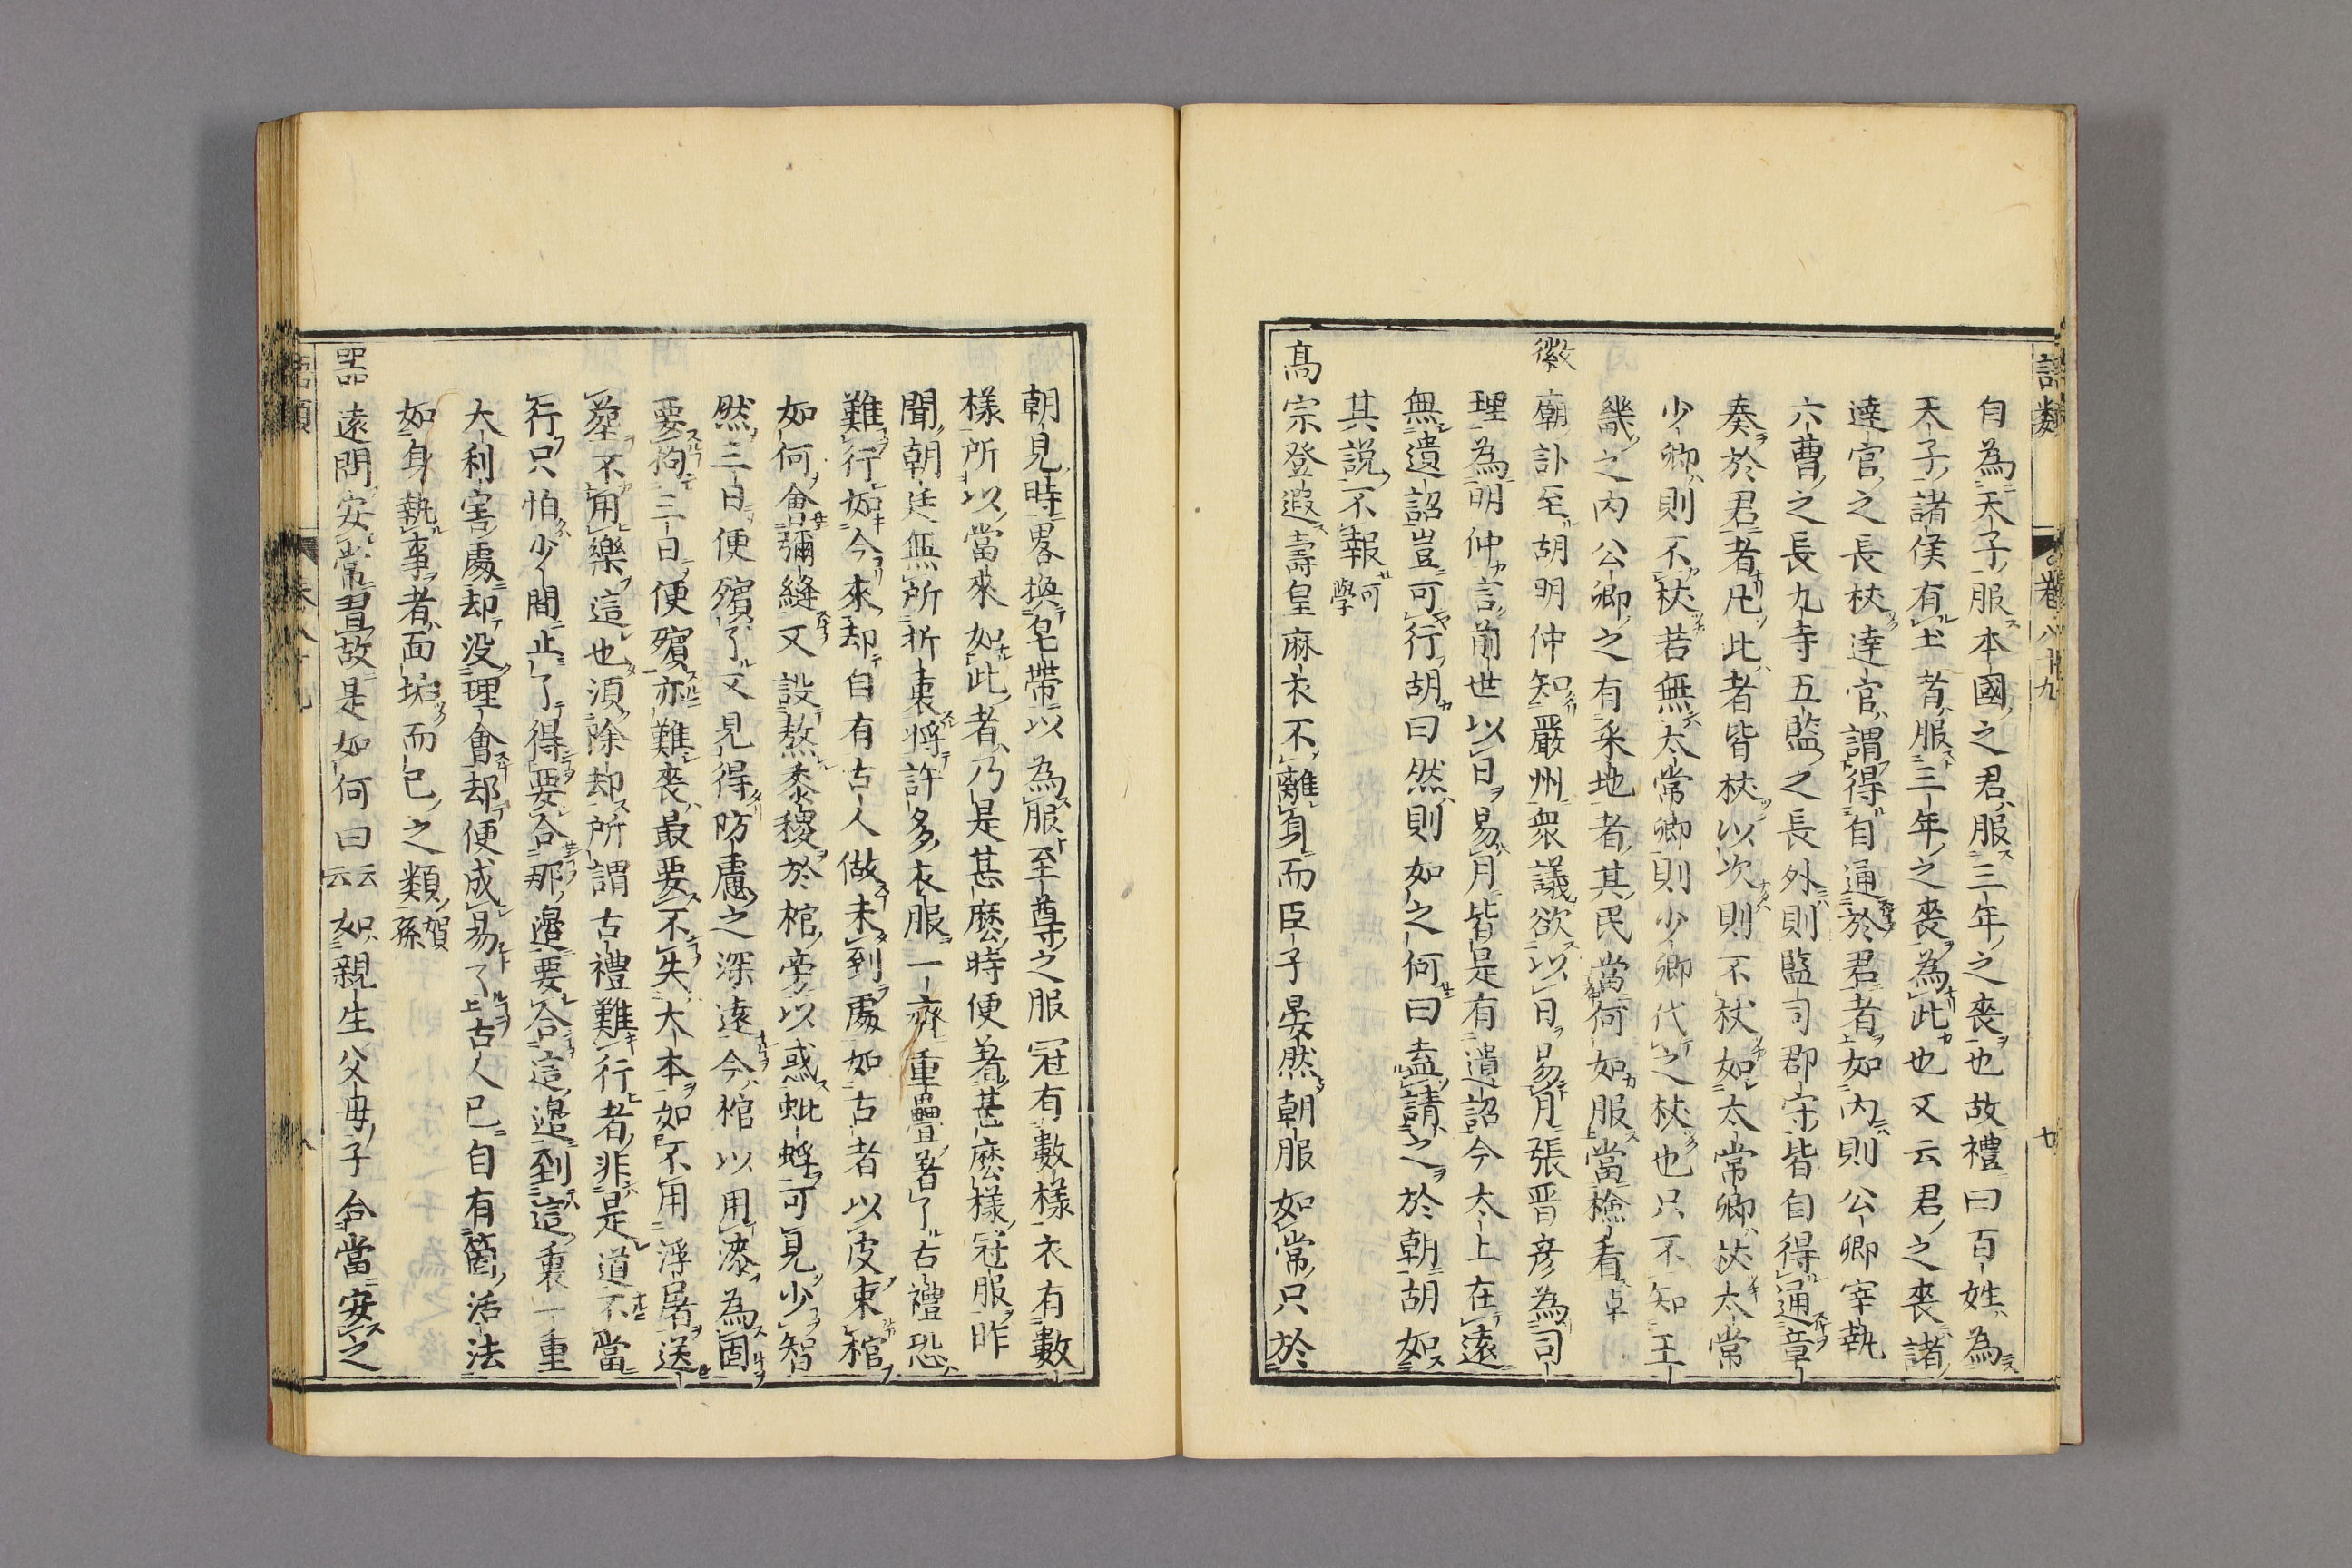 語類 卷八十九 七
自為天子服本國之君服三年之喪也故禮曰百姓為
天子諸侯有土者服三年之喪為此也又云君之喪諸
達官之長杖達官謂得自通於君者如內則公卿宰執
六曹之長九寺五監之長外則監司郡守皆自得通章
奏於君者凡此者皆杖以次則不杖如太常卿杖太常
少卿則不杖若無太常卿則少卿代之杖也只不知王
畿之內公卿之有采地者其民當何如服當檢看卓
徽廟訃至胡明仲知嚴州衆議欲以日易月張晉彦為司
理為明仲言前世以日易月皆是有遺詔今太上在遠
無遺詔豈可行胡曰然則如之何曰盍請之於朝胡如
其說不報可學
髙宗登遐壽皇麻衣不離身而臣子晏然朝服如常只於
朝見時畧換皂帶以為服至尊之服冠有數樣衣有數
樣所以當來如此者乃是甚麽時便著甚麽樣冠服昨
聞朝廷無所折衷將許多衣服一齊重疊著了古禮恐
難行如今來却自有古人做未到處如古者以皮束棺
如何會彌縫又設熬黍稷於棺旁以惑蚍蜉可見少智
然三日便殯了又見得防慮之深遠今棺以用漆為固
要拘三日便殯亦難喪最要不失大本如不用浮屠送
塟不用樂這也須除却所謂古禮難行者非是道不當
行只怕少間止了得要合那邉要合這邉到這裏一重
大利害處却没理會却便成易了古人已自有箇活法
如身執事者面垢而已之類賀孫
器遠問安常習故是如何曰云云如親生父母子合當安之
語類 卷八十九 八